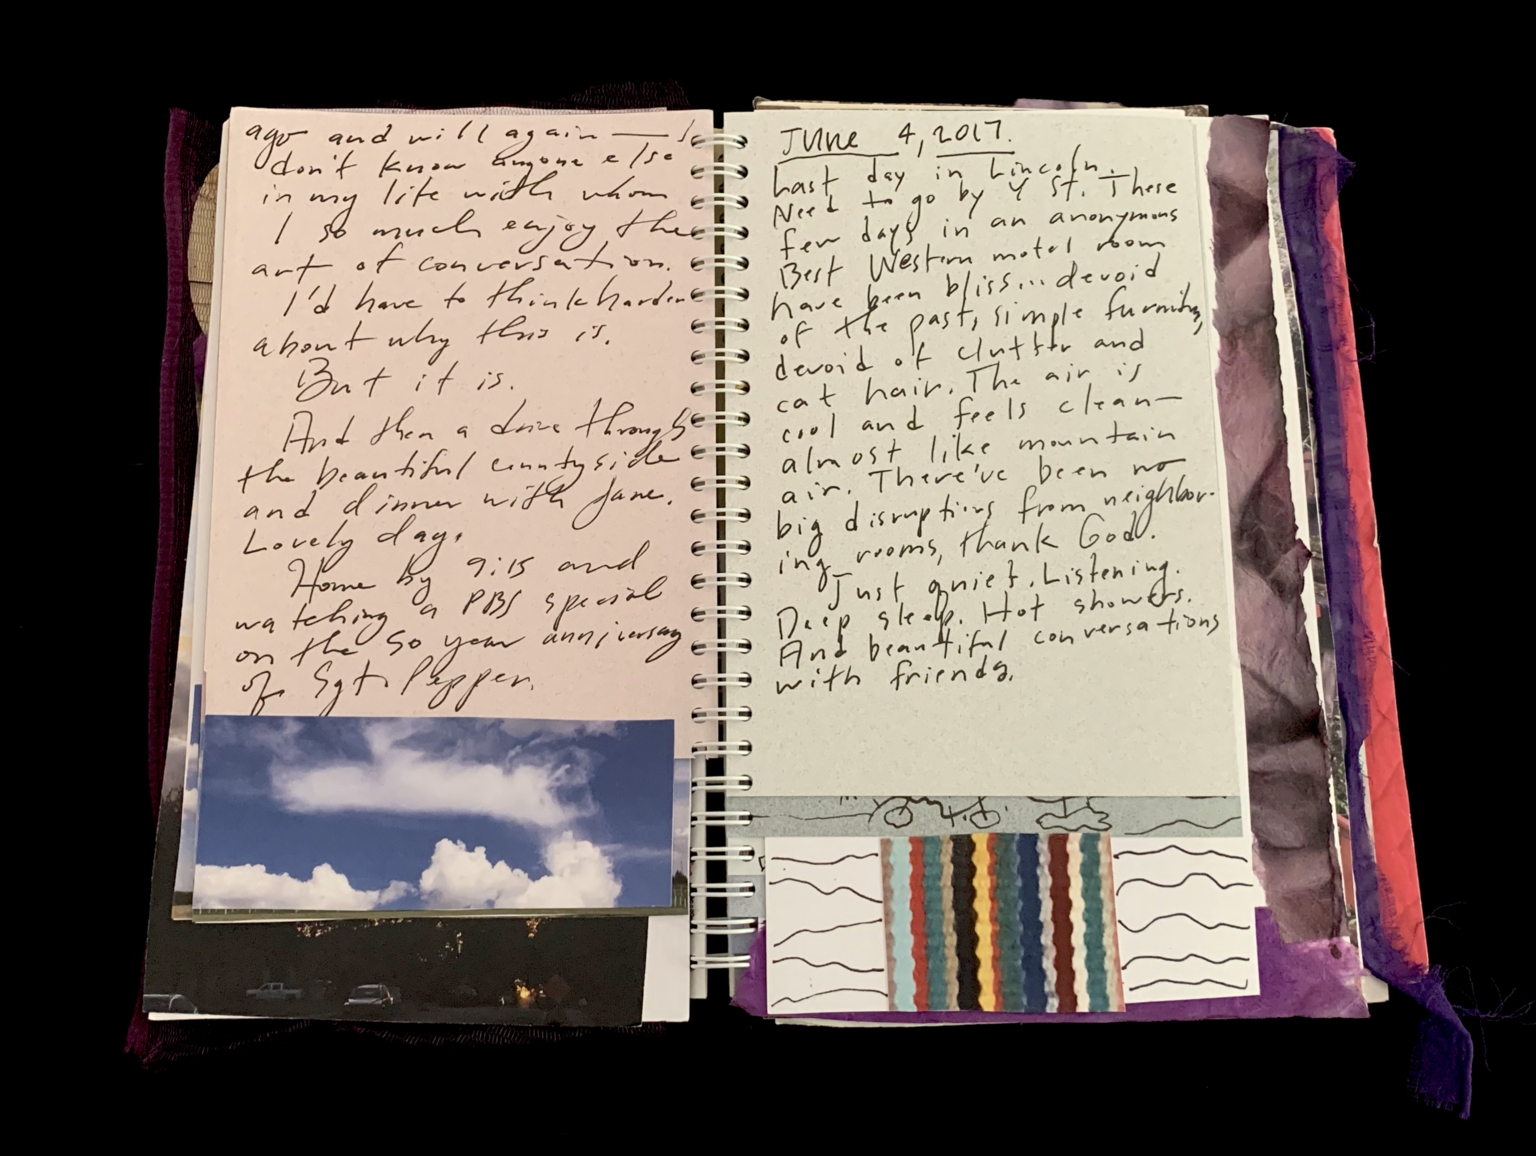 ago and will again — I
don't know anyone else
in my life with whom
I so much enjoy the
art of conversation.
I'd have to think harder
about why this is.
But it is.
And then a drive through
the beautiful countryside
and dinner with Jane.
Lovely day.
Home by 9:15 and
watching a PBS special
on the 50 year anniversary
of Sgt. Pepper.
JUNE 4, 2017.
Last day in Lincoln.
Need to go by Y St. These
few days in an anonymous
Best Western motel room
have been bliss... devoid
of the past, simple furniture,
devoid of clutter and
cat hair. The air is
cool and feels clean—
almost like mountain
air. There've been no
big disruptions from neighbor-
ing rooms, thank God.
Just quiet. Listening.
Deep sleep. Hot showers.
And beautiful conversations
with friends.